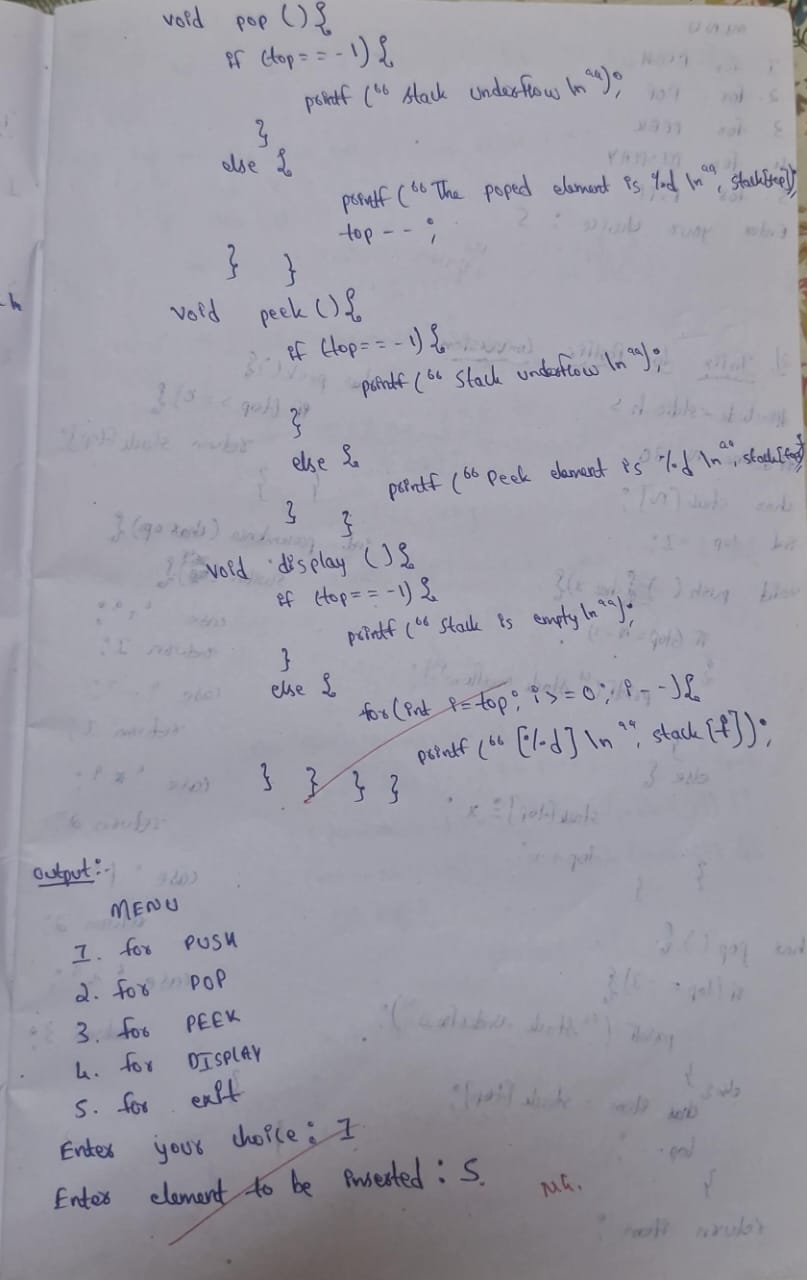 void pop () {
if (top == -1) {
printf ("stack underflow \n");
}
else {
printf ("The poped element is %d \n", stack[top]);
top --;
} }
void peek () {
if (top == -1) {
printf ("Stack underflow \n");
}
else {
printf ("Peek element is %d \n", stack[top]);
} }
void display () {
if (top == -1) {
printf ("Stack is empty \n");
}
else {
for (int i=top; i>=0; i--) {
printf ("[%d] \n", stack [i]);
} } } }
Output:-
MENU
1. for PUSH
2. for POP
3. for PEEK
4. for DISPLAY
5. for exit
Enter your choice: 1
Enter element to be inserted : 5.